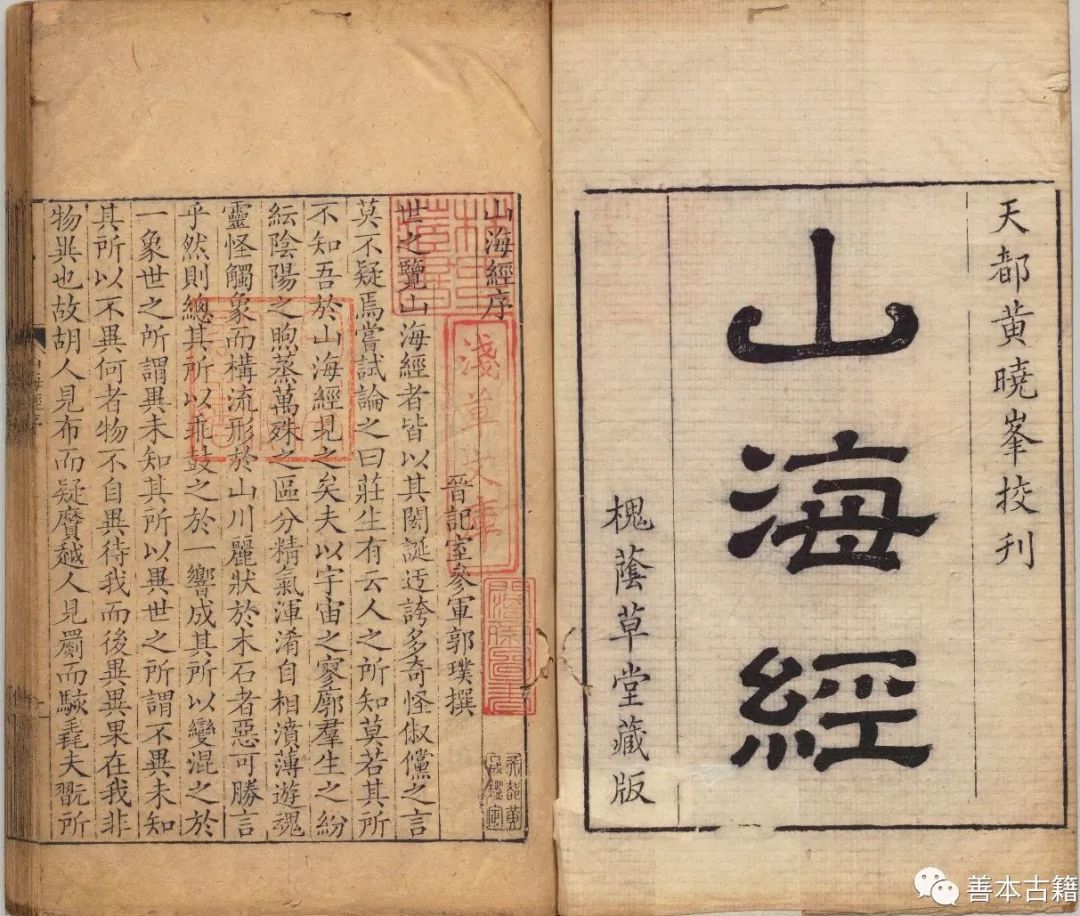 天都黄曉峯挍刊
山海經
槐蔭草堂藏版
山海經序
晉記室參軍郭璞撰
世之覽山海經者皆以其閎誕迃誇多奇怪俶儻之言
莫不疑焉嘗試論之曰莊生有云人之所知莫若其所
不知吾於山海經見之矣夫以宇宙之寥廓羣生之紛
紜陰陽之煦蒸萬殊之區分精氣渾淆自相濆薄遊魂
靈怪觸象而構流形於山川麗狀於木石者惡可勝言
乎然則總其所以乖鼓之於一響成其所以變混之於
一象世之所謂異未知其所以異世之所謂不異未知
其所以不異何者物不自異待我而後異異果在我非
物異也故胡人見布而疑黂越人見罽而駭毳夫翫所
淺草文庫
善本古籍